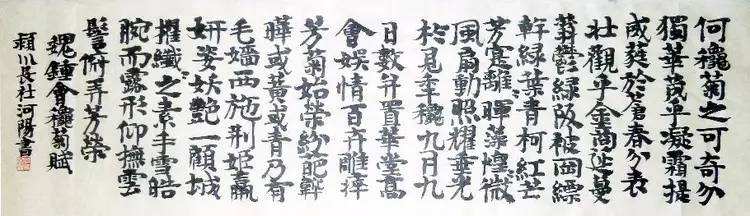 何穠菊之可奇兮
獨華茂乎凝霜提
威蕤於蒼春兮表
壯觀乎金商延蔓
蓊鬱綠阪被岡縹
幹綠葉青柯紅芒
芳寔離〻暉藻煌〻微
風扇動照耀垂光
於是季穠九月九
日數并置華堂高
會娛情百卉雕瘁
芳菊始榮紛葩韡
曄或黃或青乃有
毛嬙西施荊姬嬴
妍姿妖艷一顧城
擢纖〻之素手雪皓
腕而露形仰撫雲
髻俯弄芳榮
魏鍾會穠菊賦
潁川長社河陽書